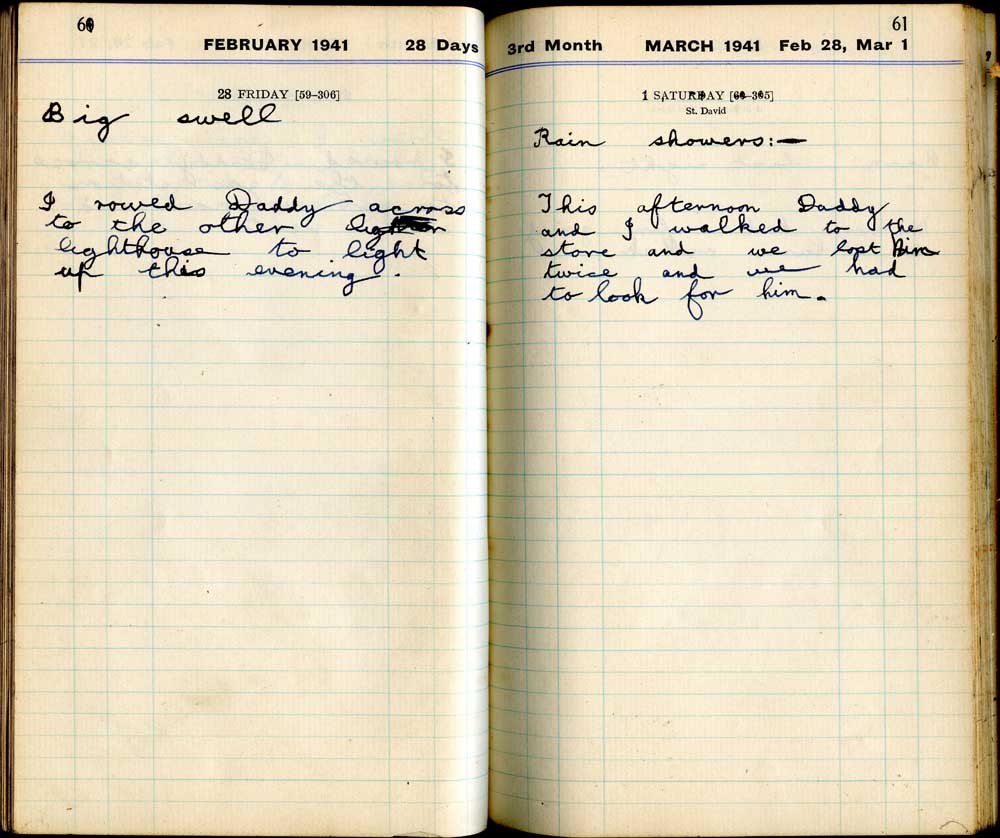 60
FEBRUARY 1941 28 Days
28 FRIDAY [59–306]
Big swell
I rowed Daddy across
to the other
lighthouse to light
up this evening.
61
3rd Month MARCH 1941 Feb 28, Mar 1
1 SATURDAY [60–305]
St. David
Rain showers:—
This afternoon Daddy
and I walked to the
store and we lost him
twice and we had
to look for him.